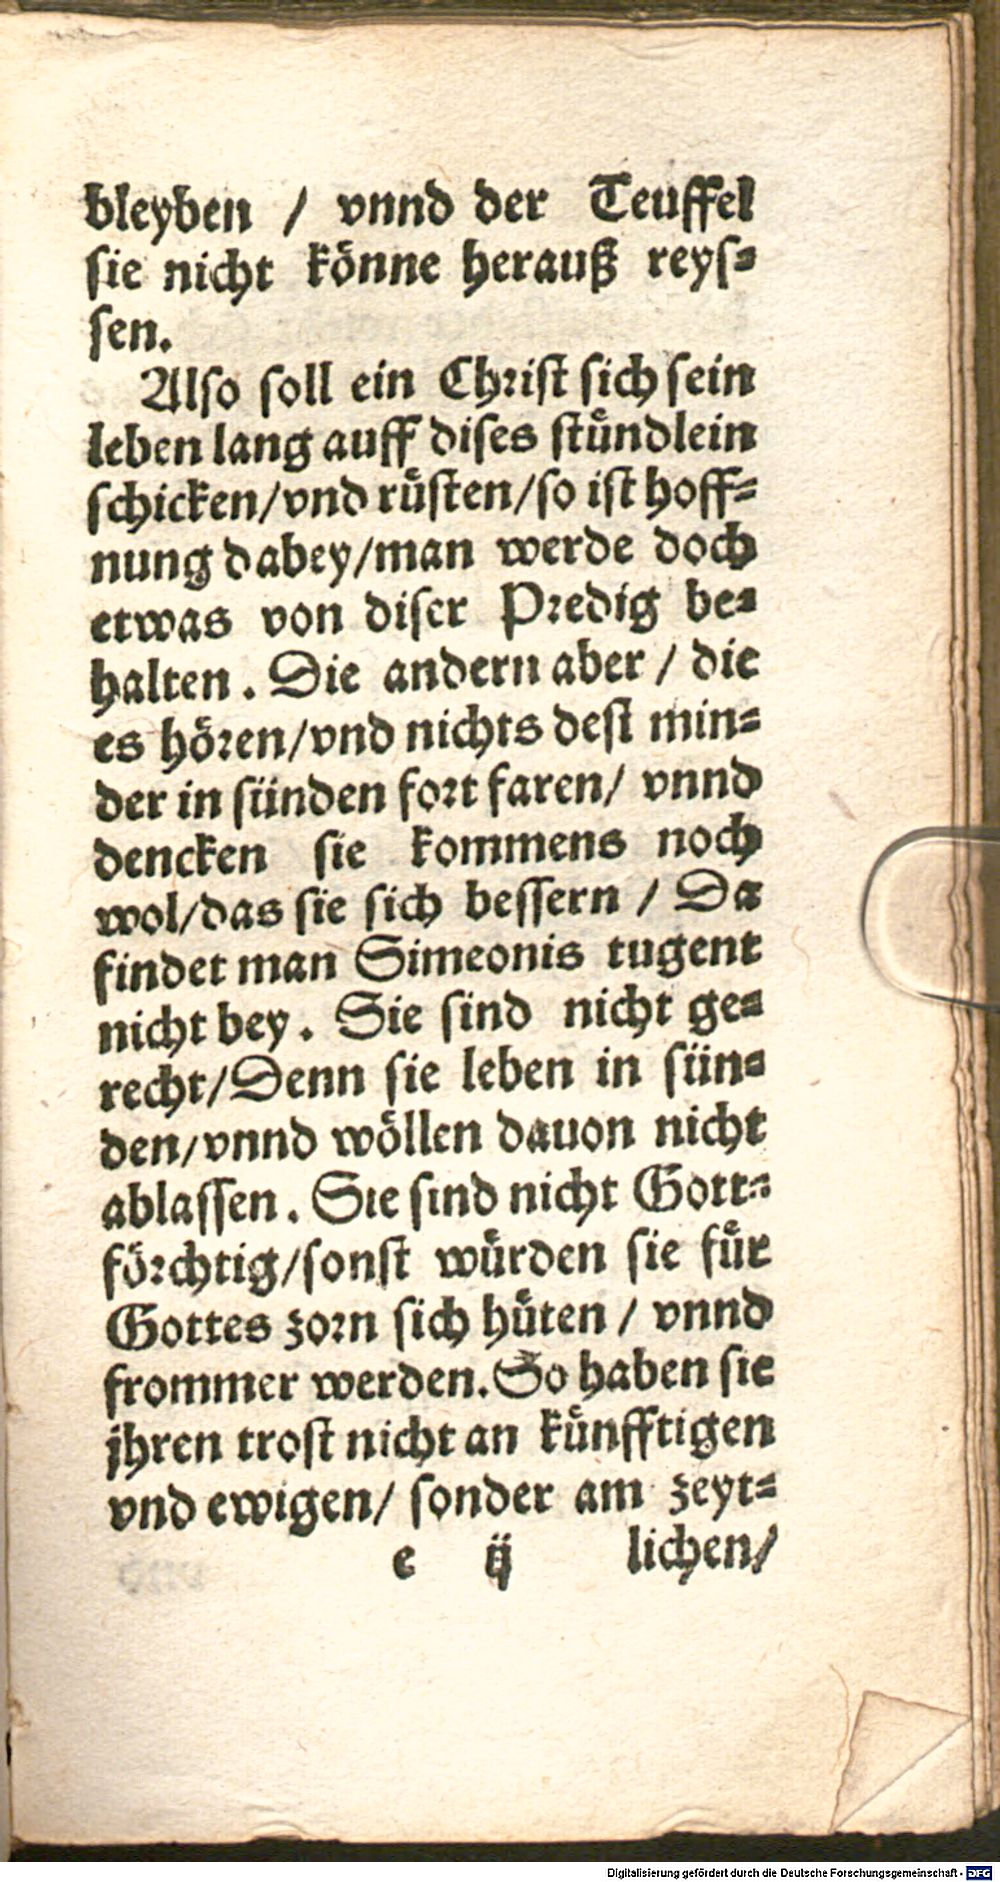 bleyben / vnnd der Teuffel
sie nicht koͤnne herauß reyſ⸗
ſen.
Alſo ſoll ein Chriſt ſich ſein
leben lang auff diſes ſtuͤndlein
ſchicken/vnd ruͤſten/ſo iſt hoff⸗
nung dabey/man werde doch
etwas von diſer Predig be⸗
halten. Die andern aber / die
es hoͤren/vnd nichts deſt min⸗
der in ſünden fort faren/ vnnd
dencken sie kommens noch
wol/das sie ſich beſſern / Da
findet man Simeonis tugent
nicht bey. Sie ſind nicht ge⸗
recht/Denn sie leben in ſün⸗
den/vnnd woͤllen dauon nicht
ablaſſen. Sie ſind nicht Gott⸗
foͤrchtig/ſonſt wuͤrden sie fuͤr
Gottes zorn ſich huͤten / vnnd
frommer werden. So haben ſie
jhren troſt nicht an kuͤnfftigen
vnd ewigen/ ſonder am zeyt⸗
e ij lichen/
Digitalisierung gefördert durch die Deutsche Forschungsgemeinschaft - DFG